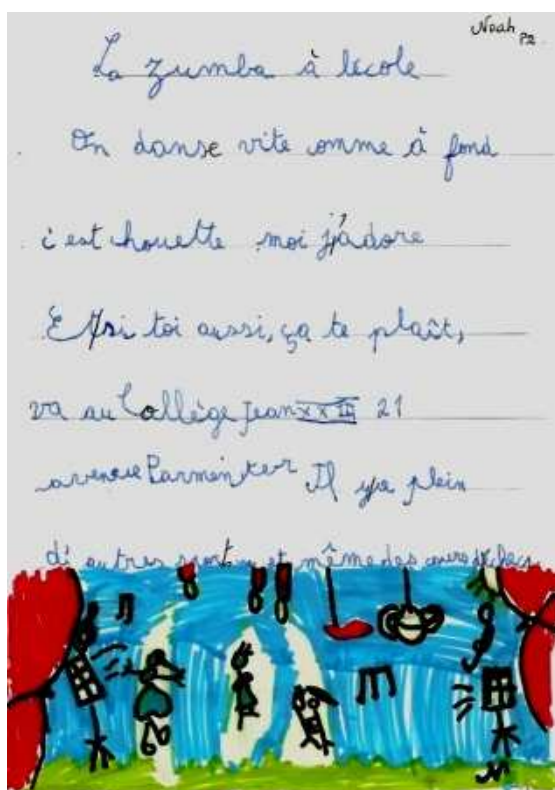 Noah P2
La zumba à lecole
On danse vite comme à fond
c'est chouette moi j'adore
Et si toi aussi, ça te plaît,
va au Collège Jean XXIII 21
avenue Parmentier Il ya plein
d'autres sports et même des cours d'echecs